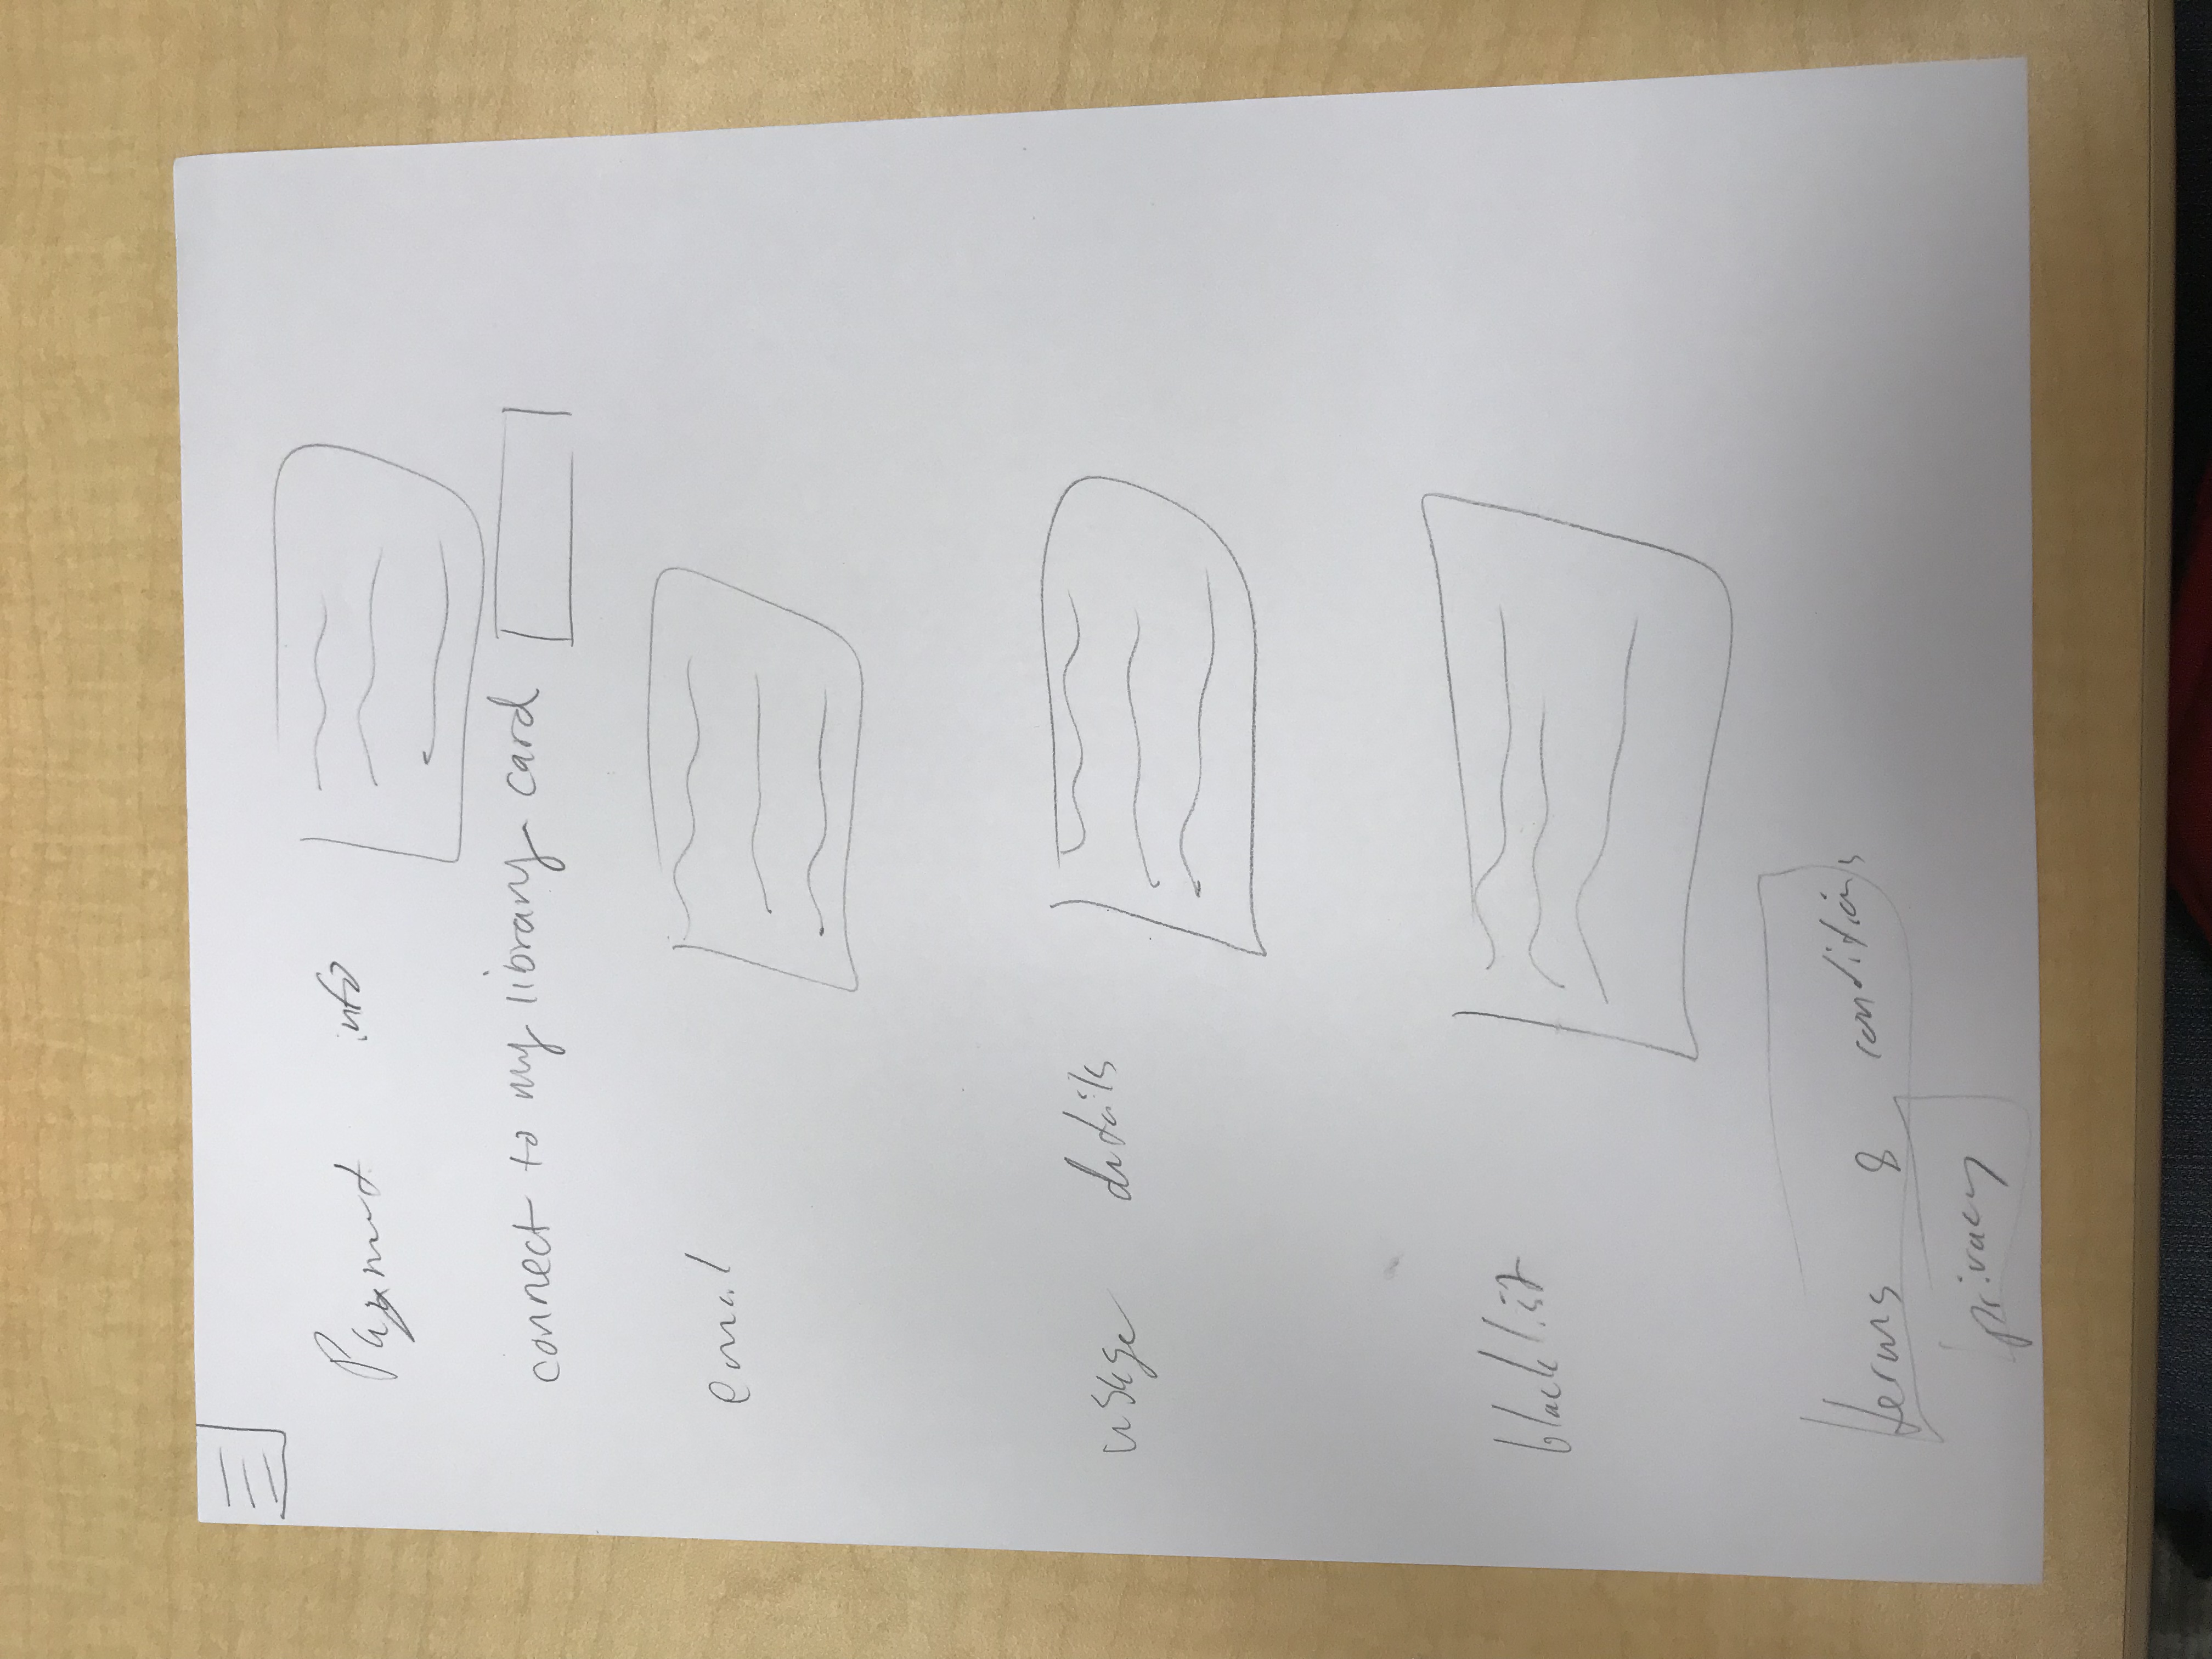 Payment info
connect to my library card
email
usage details
blacklist
terms & conditions
privacy